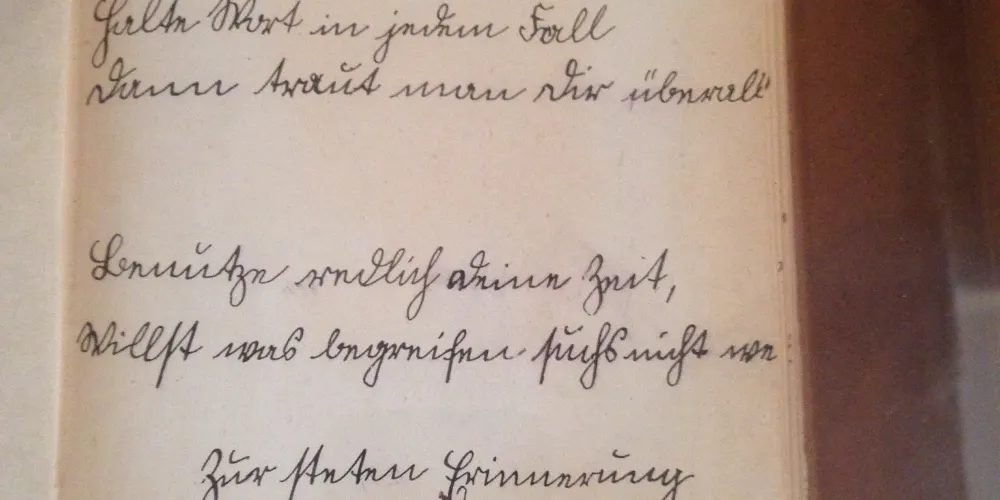 Halte Wort in jedem Fall
Dann traut man Dir überall
Benutze redlich deine Zeit,
Willst was begreifen suchs nicht we
Zur steten Erinnerung